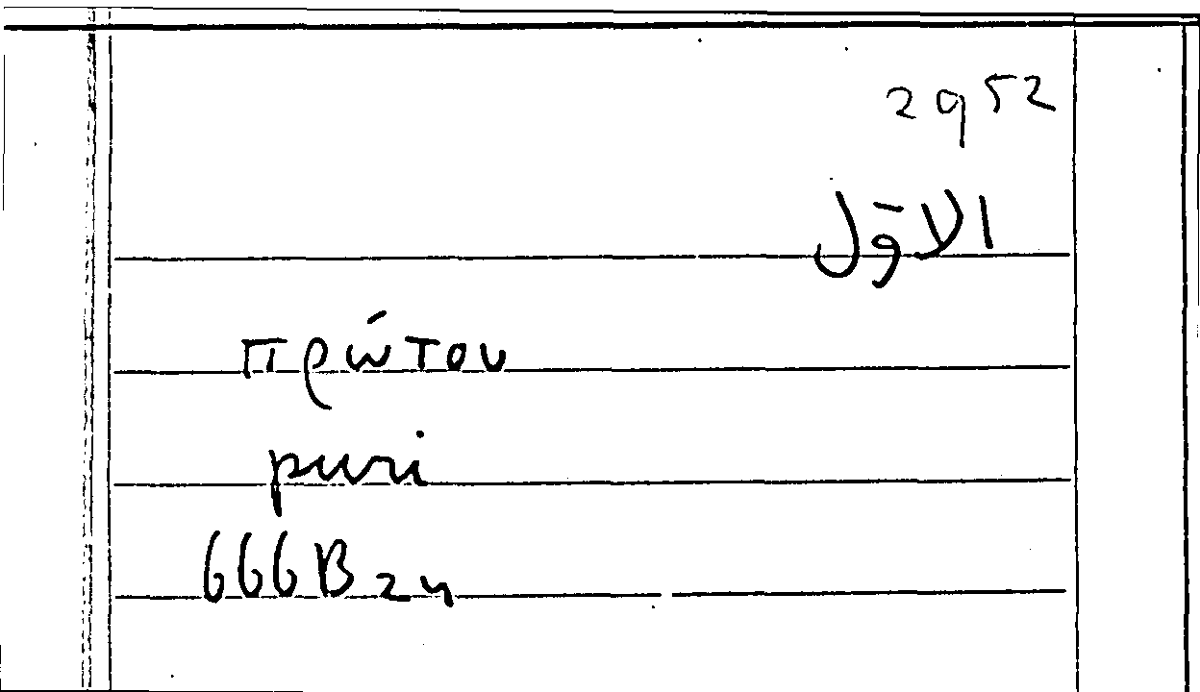 2952
الاوّل
πρώτου
puri
666B24